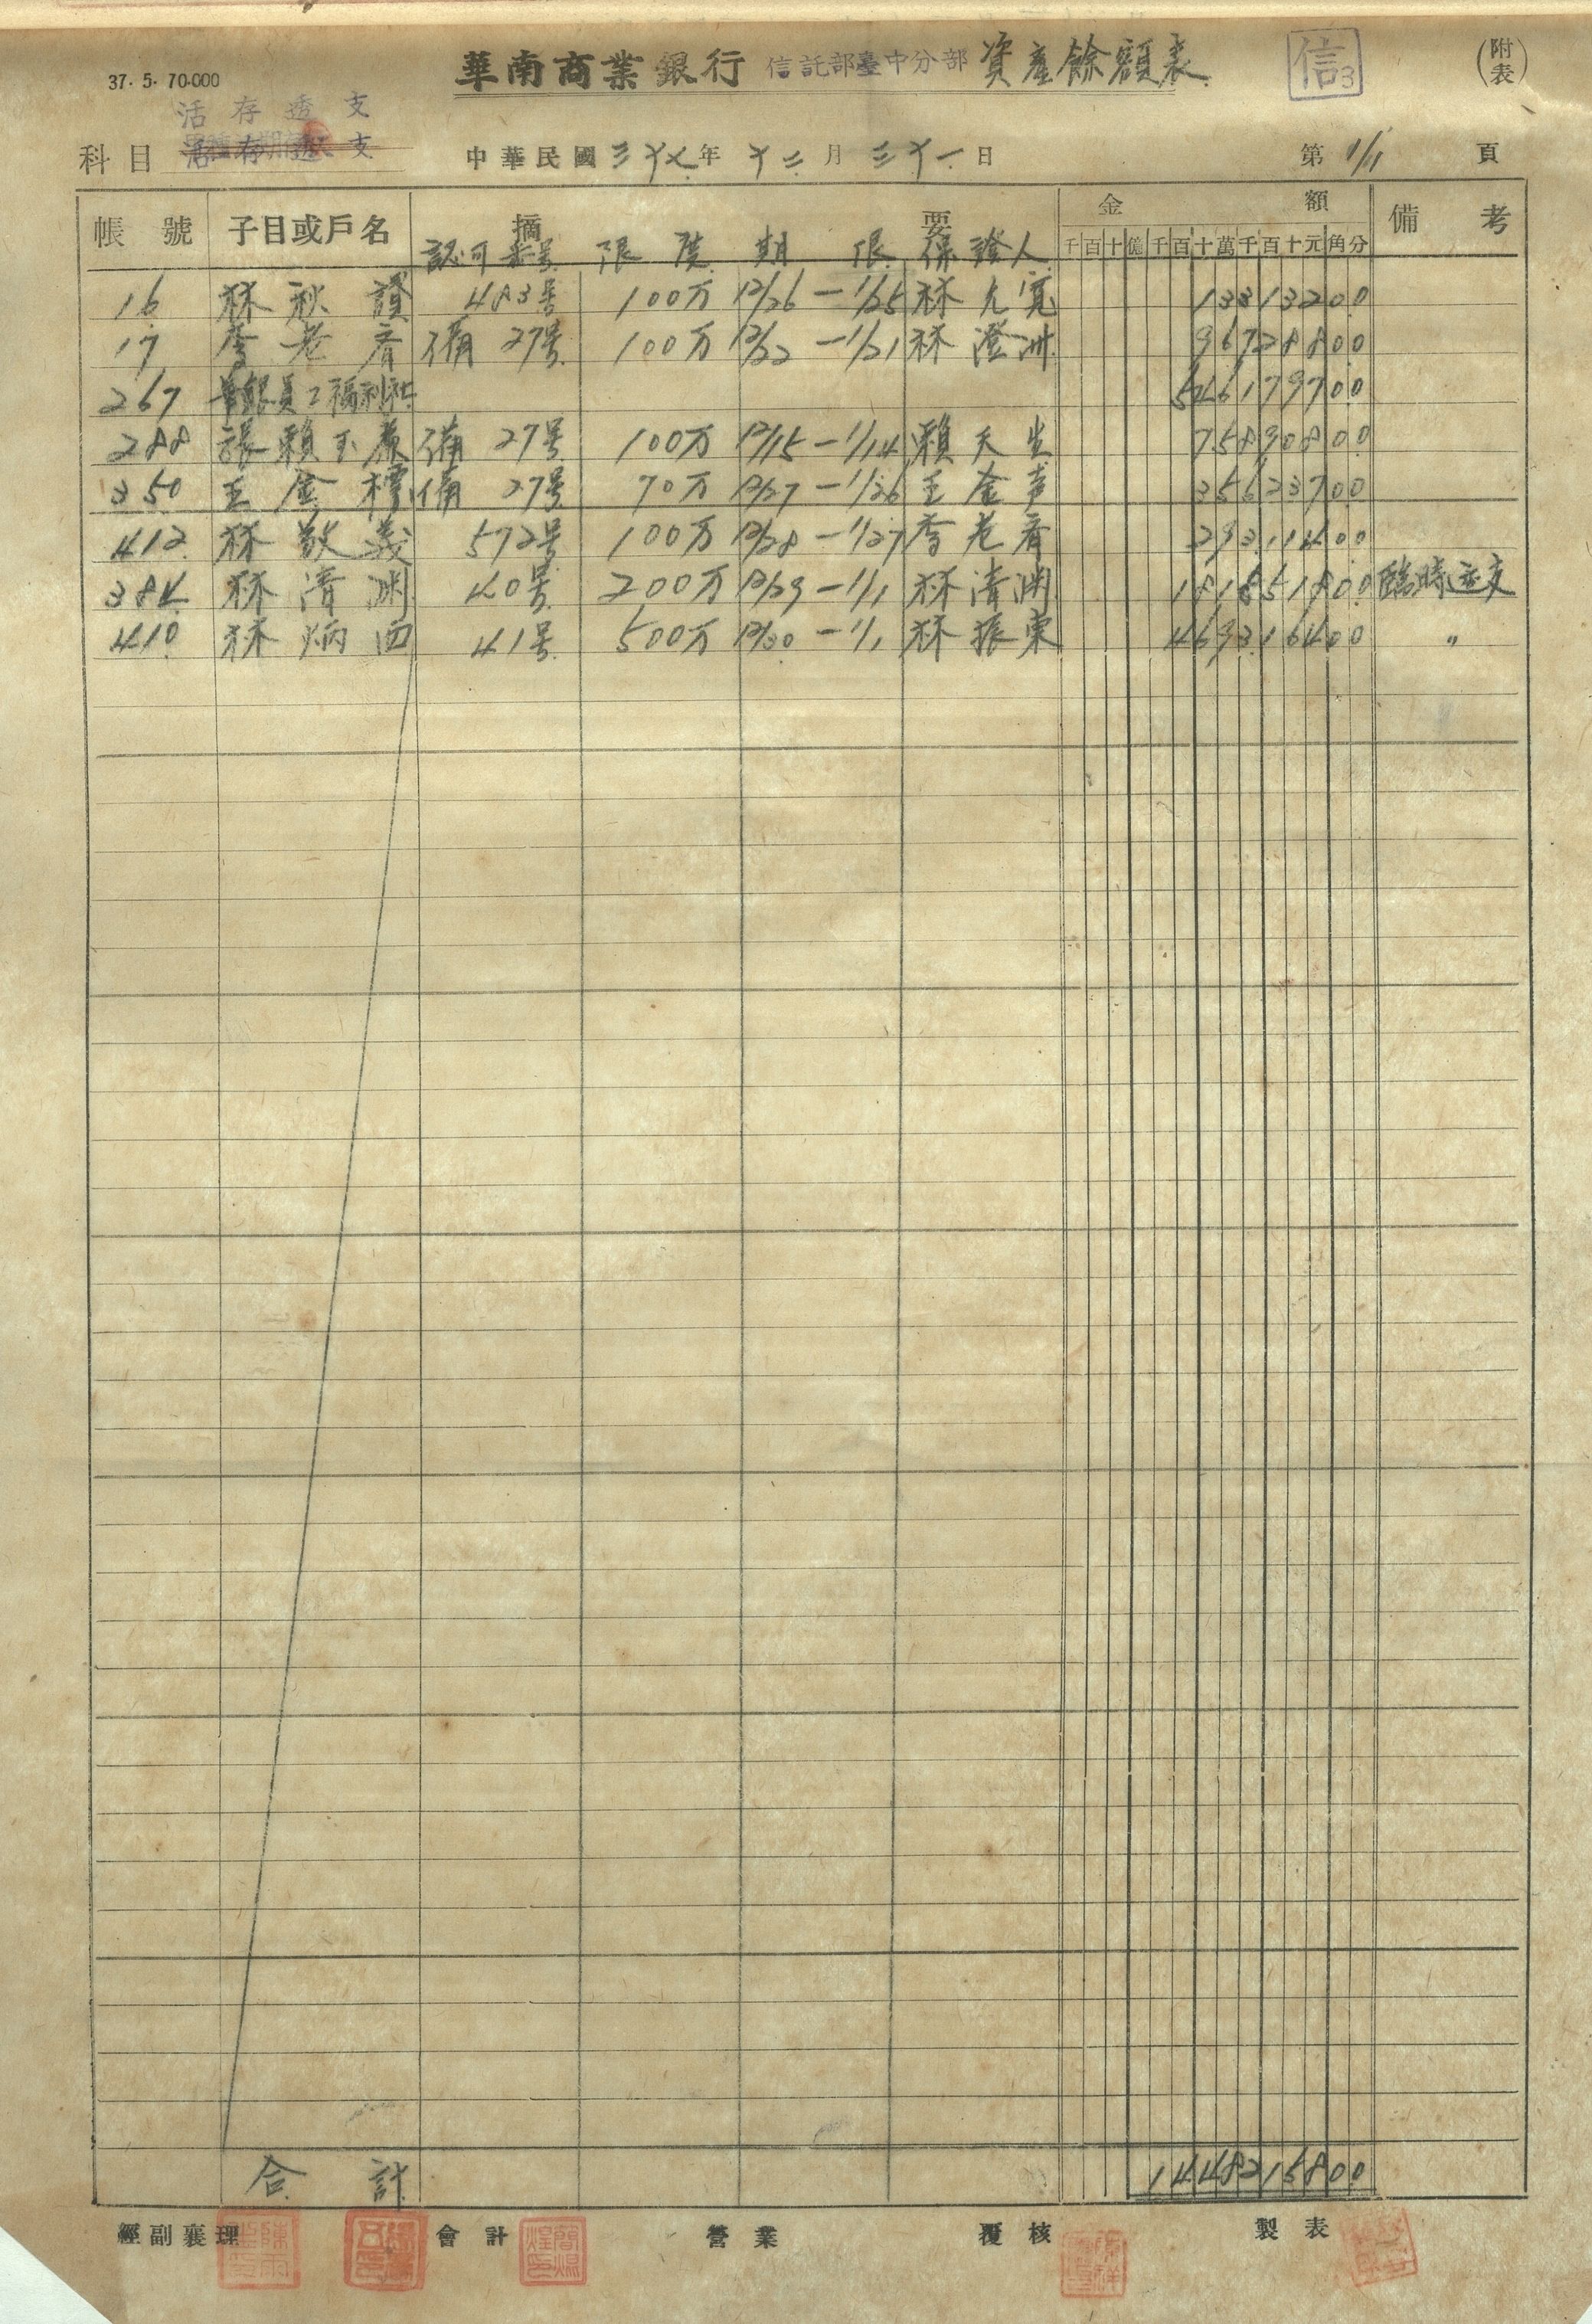 37·5·70·000
華南商業銀行 信託部臺中分部 資產餘額表
信3
(附表)
活存透支
科目 活存透支
中華民國三十七年十二月三十一日
第 1/1 頁
帳號 子目或戶名 摘要 金額 備考
認可番号 限度 期限 保證人 千百十億千百十萬千百十元角分
16 林秋證 483号 100万 12/26—1/25 林允寬 13313200
17 李老看 備27号 100万 12/22—1/21 林澄洲 96728800
267 華銀員工福利社 546179700
288 張賴玉廉 備27号 100万 12/15—1/14 賴天生 75890800
350 王金標 備27号 70万 12/27—1/26 王金声 35623700
412 林敬義 572号 100万 12/28—1/27 李老看 29311400
384 林清渊 40号 200万 12/29—1/1 林清渊 181851800 臨時透支
410 林炳四 41号 500万 12/30—1/1 林振東 469316400 〃
合計 1448215800
經副襄理 會計 營業 覆核 製表